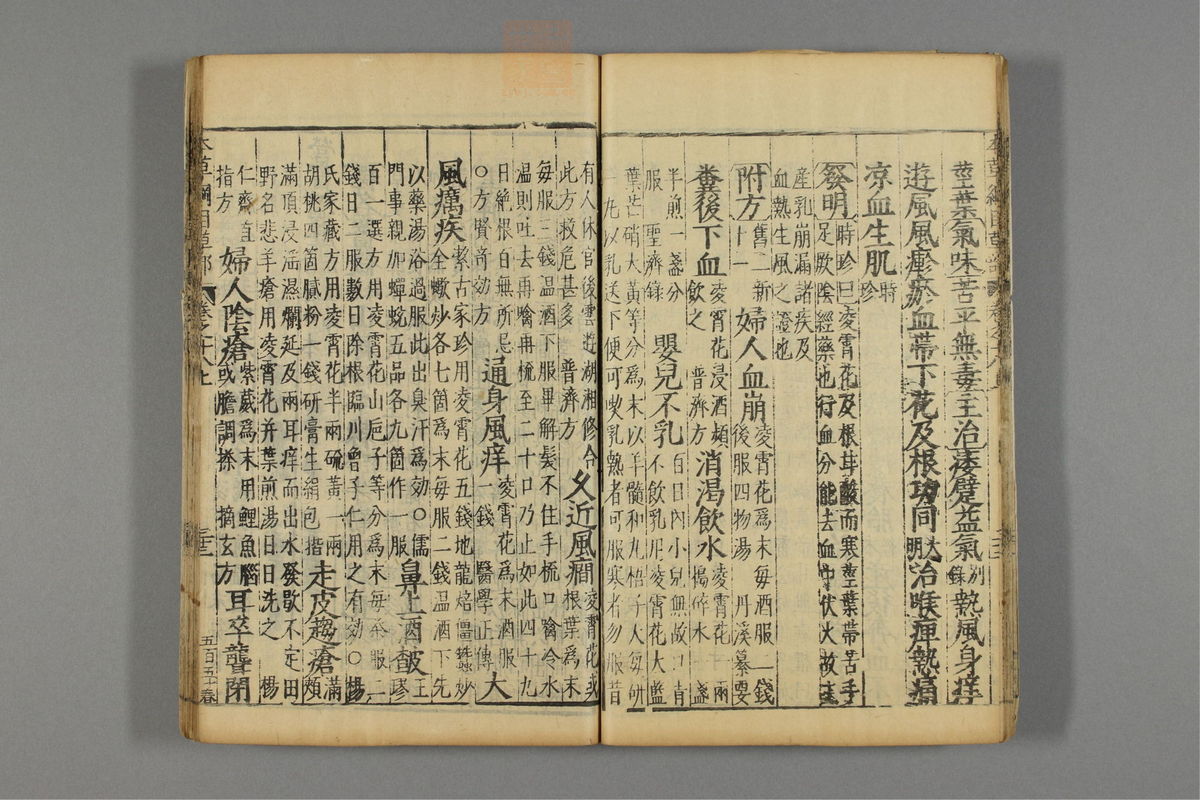 莖葉氣味苦平無毒主治痿躄益氣別錄熱風身痒
遊風風瘮瘀血帶下花及根功同大明治喉痺熱痛
凉血生肌時珍
發明時珍曰凌霄花及根甘酸而寒莖葉帶苦手
足厥陰經藥也行血分能去血中伏火故主
產乳崩漏諸疾及
血熱生風之證也
附方舊二新十一婦人血崩凌霄花為末每酒服二錢
後服四物湯 丹溪纂要
糞後下血凌霄花浸酒頻飲之 普濟方 消渴飲水凌霄花一兩擣碎水一盞
半煎一盞分
服 聖濟錄 嬰兒不乳百日內小兒無故口青
不飲乳用凌霄花大藍
葉芒硝大黃等分為末以羊髓和丸梧子大每研
一丸以乳送下便可喫乳熱者可服寒者勿服昔
有人休官後雲遊湖湘修合
此方救危甚多 普濟方 久近風癇凌霄花或根葉為末
每服三錢溫酒下服畢解髮不住手梳口噙冷水
溫則吐去再噙再梳至二十口乃止如此四十九
日絕根百無所忌
○方賢奇効方 通身風痒凌霄花為末酒服一錢 醫學正傳 大
風癘疾潔古家珍用凌霄花五錢地龍焙僵蠶炒
全蠍炒各七箇為末每服二錢溫酒下先
以藥湯浴過服此出臭汗為効○儒
門事親加蟬蛻五品各九箇作一服 鼻上酒皶王璆
百一選方用凌霄花山巵子等分為末每茶服二
錢日二服數日除根臨川曾子仁用之有効○楊
氏家藏方用凌霄花半兩硫黃一兩
胡桃四箇膩粉一錢研膏生絹包揩 走皮趨瘡滿頰
滿頂浸淫濕爛延及兩耳痒而出水發歇不定田
野名悲羊瘡用凌霄花并葉煎湯日日洗之 楊
仁齋直指方 婦人陰瘡紫葳為末用鯉魚腦或膽調搽 摘玄方 耳卒聾閉
本草綱目草部 卷之十八上
五百五十春